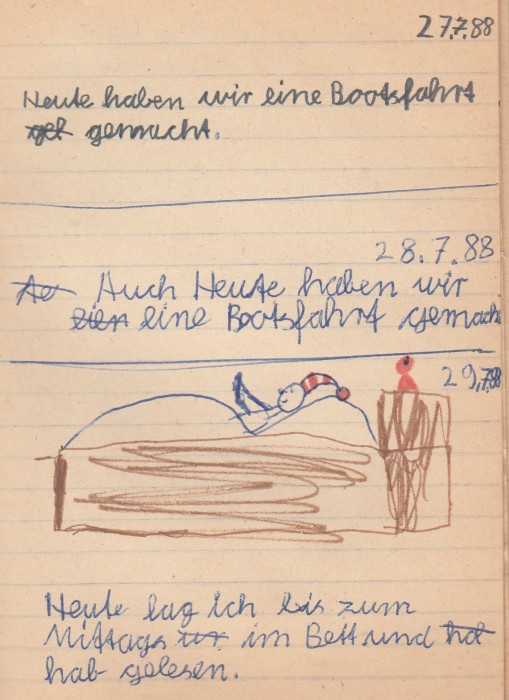 27.7.88
Heute haben wir eine Bootsfahrt
gemacht.
28.7.88
Auch Heute haben wir
eine Bootsfahrt gemach
29.7.88
Heute lag ich bis zum
Mittags im Bett und
hab gelesen.